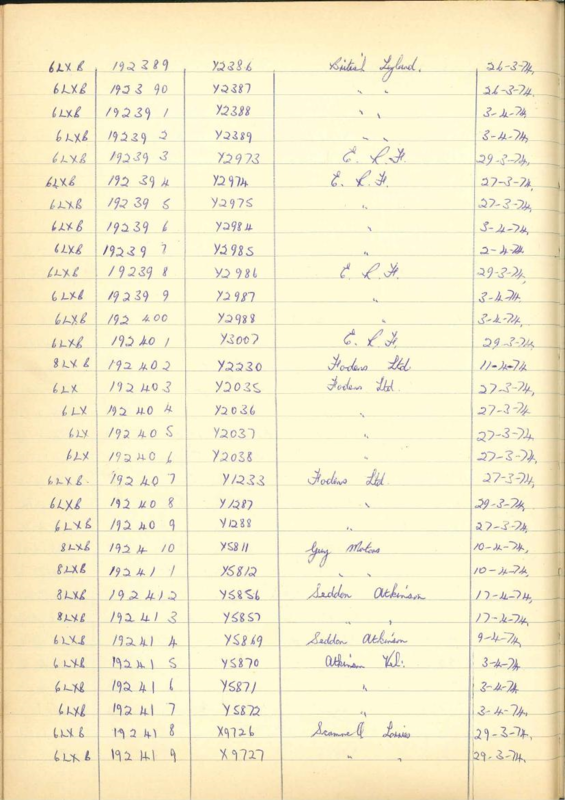 6LXB 192389 Y2386 British Leyland. 26-3-74.
6LXB 192390 Y2387 " " 26-3-74.
6LXB 192391 Y2388 " " 3-4-74.
6LXB 192392 Y2389 " " 3-4-74.
6LXB 192393 Y2973 E. R. F. 29-3-74.
6LXB 192394 Y2974 E. R. F. 27-3-74.
6LXB 192395 Y2975 " 27-3-74.
6LXB 192396 Y2984 " 3-4-74.
6LXB 192397 Y2985 " 2-4-74.
6LXB 192398 Y2986 E. R. F. 29-3-74.
6LXB 192399 Y2987 " 3-4-74.
6LXB 192400 Y2988 " 3-4-74.
6LXB 192401 Y3007 E. R. F. 29-3-74.
8LXB 192402 Y2230 Fodens Ltd 11-4-74
6LX 192403 Y2035 Fodens Ltd. 27-3-74.
6LX 192404 Y2036 " 27-3-74.
6LX 192405 Y2037 " 27-3-74.
6LX 192406 Y2038 " 27-3-74.
6LXB. 192407 Y1233 Fodens Ltd. 27-3-74.
6LXB 192408 Y1287 " 29-3-74.
6LXB 192409 Y1288 " 27-3-74.
8LXB 192410 Y5811 Guy Motors 10-4-74.
8LXB 192411 Y5812 " " 10-4-74.
8LXB 192412 Y5856 Seddon Atkinson 17-4-74.
8LXB 192413 Y5857 " " 17-4-74.
6LXB 192414 Y5869 Seddon Atkinson 9-4-74.
6LXB 192415 Y5870 Atkinson 3-4-74.
6LXB 192416 Y5871 " 3-4-74.
6LXB 192417 Y5872 " 3-4-74.
6LXB 192418 X9726 Scammell Lorries 29-3-74.
6LXB 192419 X9727 " " 29-3-74.